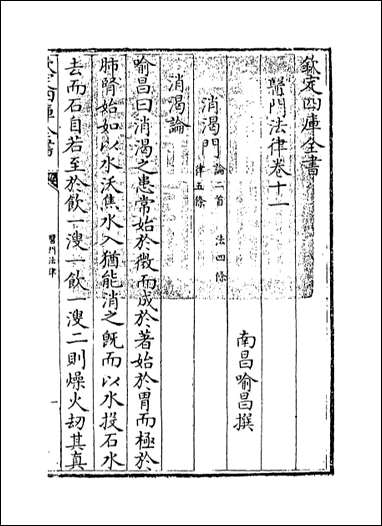 欽定四庫全書
醫門法律卷十一
南昌喻昌撰
消渴門
論二首 法四條
律五條
消渴論
喻昌曰消渴之患常始於微而成於著始於胃而極於
肺腎始如以水沃焦水入猶能消之既而以水投石水
去而石自若至於飲一溲一飲一溲二則燥火劫其真
醫門法律
一